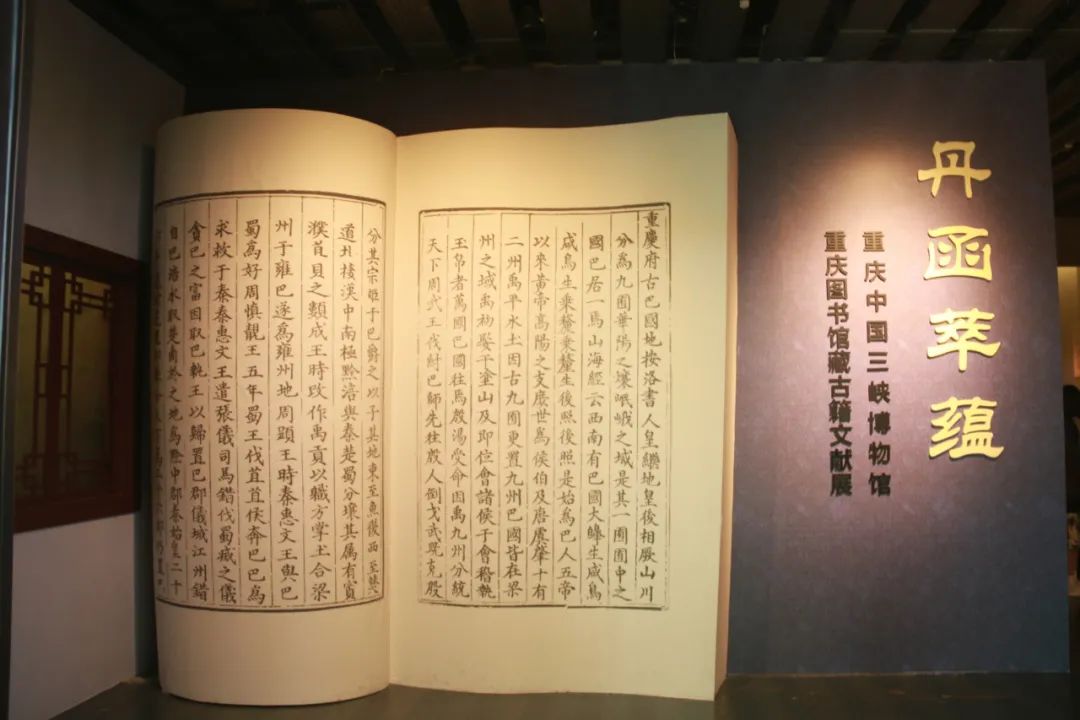 丹函萃蕴
重庆中国三峡博物馆
重庆图书馆藏古籍文献展
重慶府古巴國地按洛書人皇繼地皇後相厥山川
分為九囿華陽之壤岷峨之域是其一囿囿中之
國巴居一焉山海經云西南有巴國大皞生咸鳥
咸鳥生乗釐乗釐生後照後照是始為巴人五帝
以來黄帝高陽之支庶世為侯伯及唐虞肇十有
二州禹平水土因古九囿更置九州巴國皆在梁
州之域禹初娶于塗山及即位會諸侯于會稽執
玉帛者萬國巴國往焉殷湯受命因禹九州分統
天下周武王伐紂巴師先往殷人倒戈武既克殷
分其宗姬于巴爵之以子其地東至魚復西至僰
道北接漢中南極黔涪與秦楚蜀分壤其属有賨
濮苴貝之類成王時改作禹貢以職方學士合梁
州于雍巴遂為雍州地周顯王時秦惠文王與巴
蜀為好周慎靚王五年蜀王伐苴苴侯奔巴巴為
求救于秦秦惠文王遣張儀司馬錯伐蜀滅之儀
貪巴之富因取巴執王以歸置巴郡儀城江州錯
自巴涪水取楚商於之地為黔中郡秦始皇二十